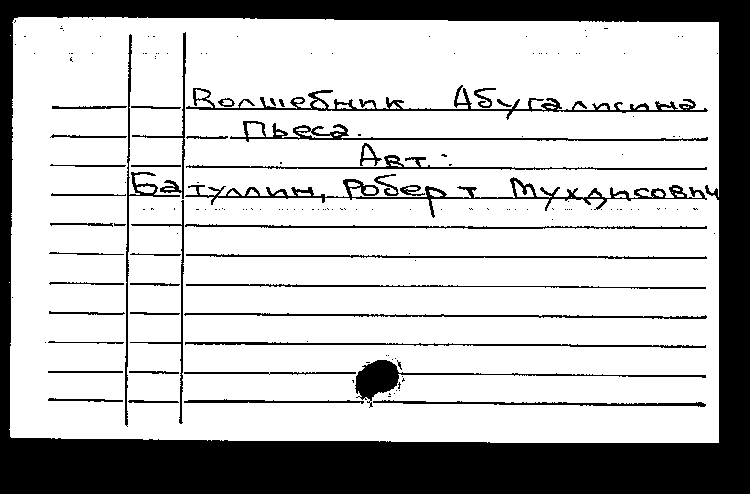 Волшебник Абугалисина
Пьеса.
Авт.:
Батуллин, Роберт Мухдисович